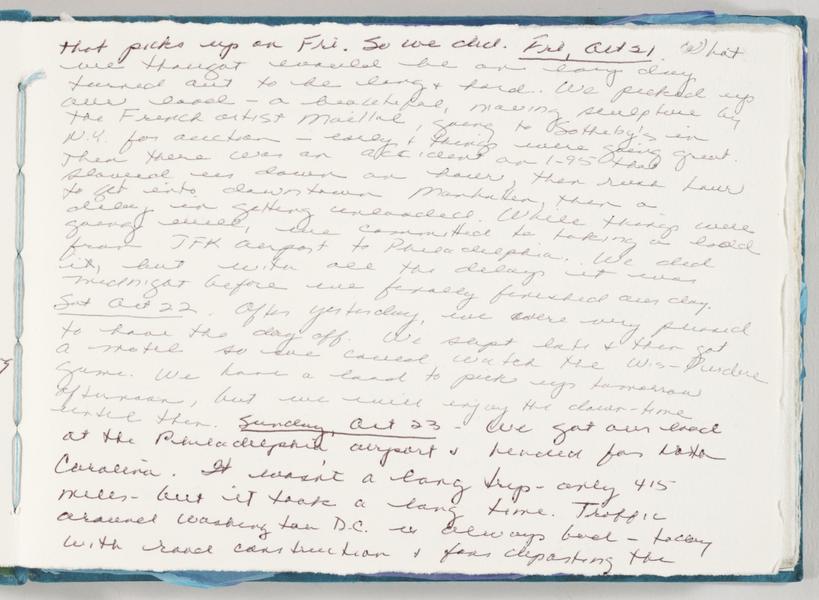 that picks up on Fri. So we did. Fri, Oct 21 What
we thought would be an easy day
turned out to be long & hard. We picked up
our load - a beautiful, moving sculpture by
the French artist Maillol, going to Sotheby's in
N.Y. for auction - early & things were going great.
Then there was an accident on I-95 that
slowed us down an hour, then rush hour
to get into downtown Manhatten, then a
delay in getting unloaded. While things were
going well, we committed to taking a load
from JFK airport to Philadelphia. We did
it, but with all the delays it was
midnight before we finally finished our day.
Sat Oct 22. After yesterday, we were very pleased
to have the day off. We slept late & then got
a motel so we could watch the Wis-Purdue
game. We have a load to pick up tomorrow
afternoon, but we will enjoy the down-time
until then. Sunday, Oct 23 - We got our load
at the Philadelphia airport & headed for North
Carolina. It wasn't a long trip - only 415
miles - but it took a long time. Traffic
around Washington D.C. is always bad - today
with road construction & fans departing the